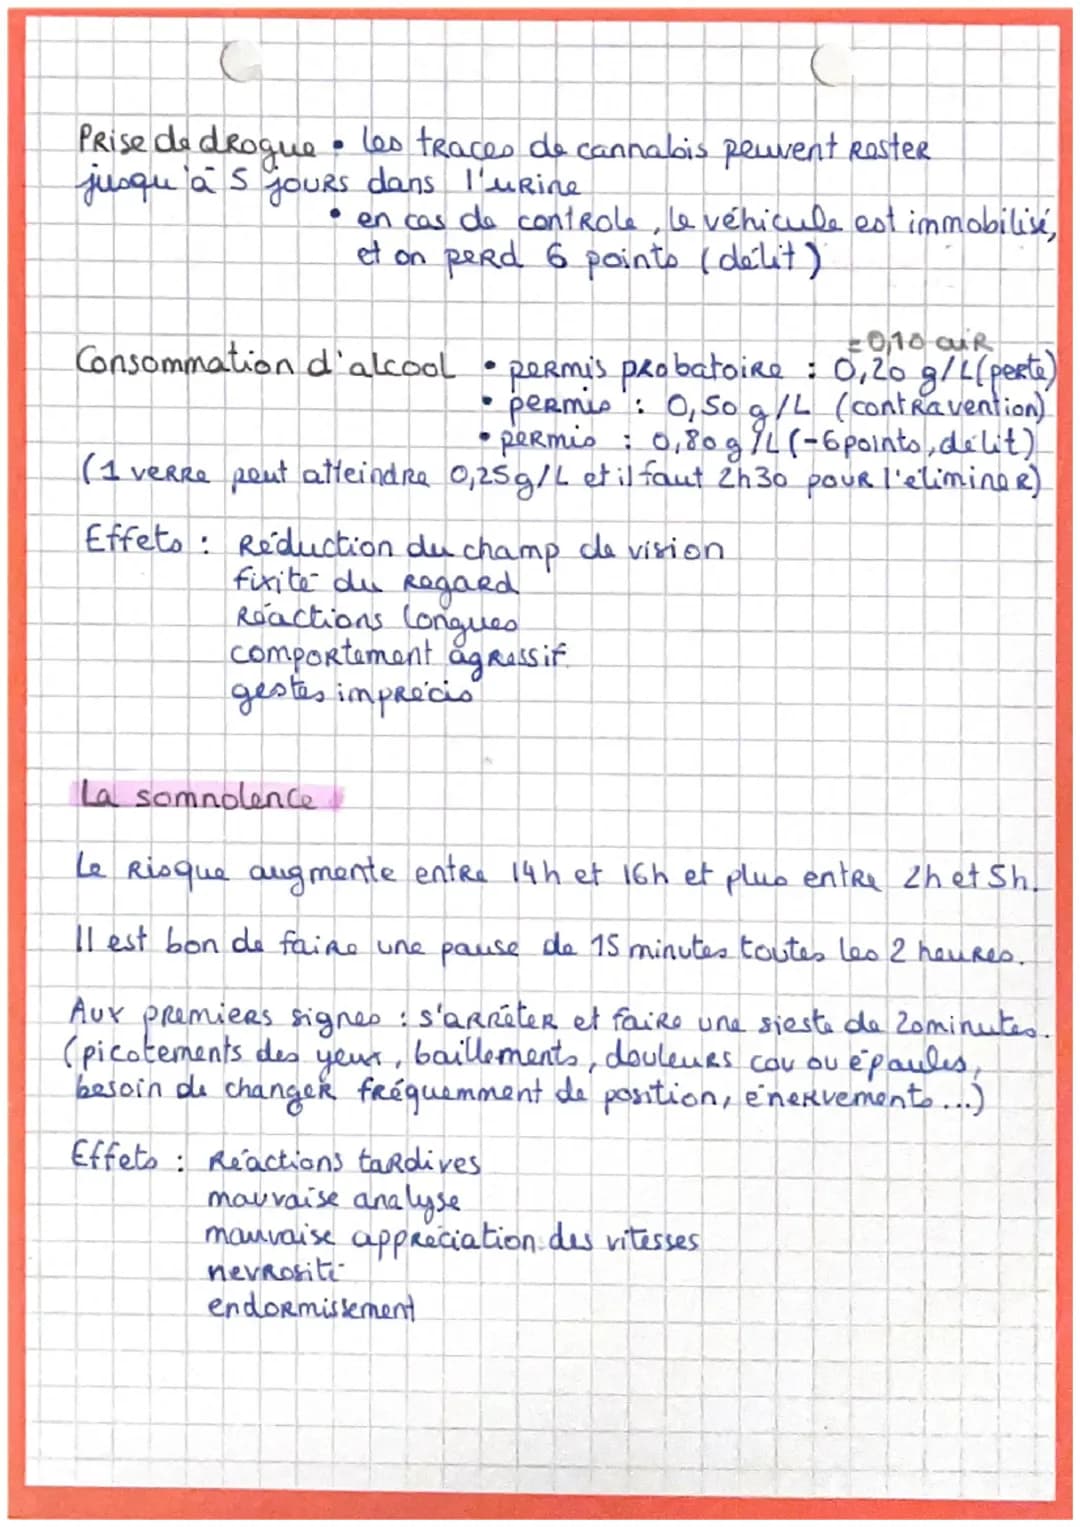 Prise de drogue • les traces de cannabis peuvent rester
jusqu'à 5 jours dans l'urine
• en cas de controle, le véhicule est immobilisé,
et on perd 6 points (délit)
= 0,10 air
Consommation d'alcool • permis probatoire : 0,20 g/L (perte)
• permis : 0,50 g/L (contravention)
• permis : 0,80 g/L (-6 points, délit)
(1 verre peut atteindre 0,25 g/L et il faut 2h30 pour l'éliminer)
Effets : Réduction du champ de vision
fixité du regard
Réactions longues
comportement agressif
gestes imprécis
La somnolence
Le risque augmente entre 14h et 16h et plus entre 2h et 5h.
Il est bon de faire une pause de 15 minutes toutes les 2 heures.
Aux premiers signes : s'arrêter et faire une sieste de 20 minutes.
(picotements des yeux, baillements, douleurs cou ou épaules,
besoin de changer fréquemment de position, énervements ...)
Effets : Réactions tardives
mauvaise analyse
mauvaise appréciation des vitesses
nevrosité
endormissement